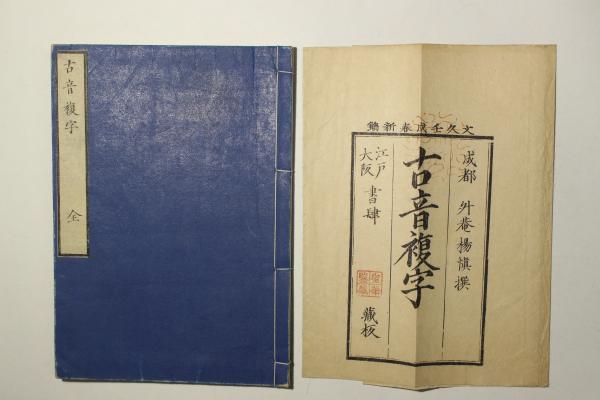 古音複字 全
文久壬戌春新鐫
成都 升菴楊慎撰
古音複字
江戶
大阪
書肆 藏板